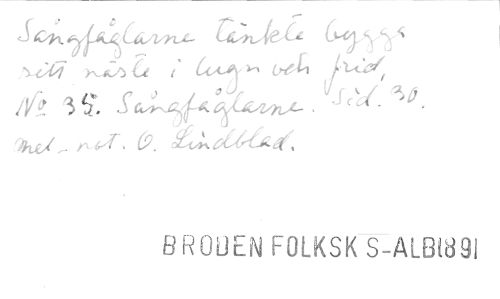 Sångfåglarne tänkte bygga
sitt näste i lugn och frid,
No 35. Sångfåglarne. Sid. 30.
mel-not. O. Lindblad.
BRODEN FOLKSK S-ALB1891